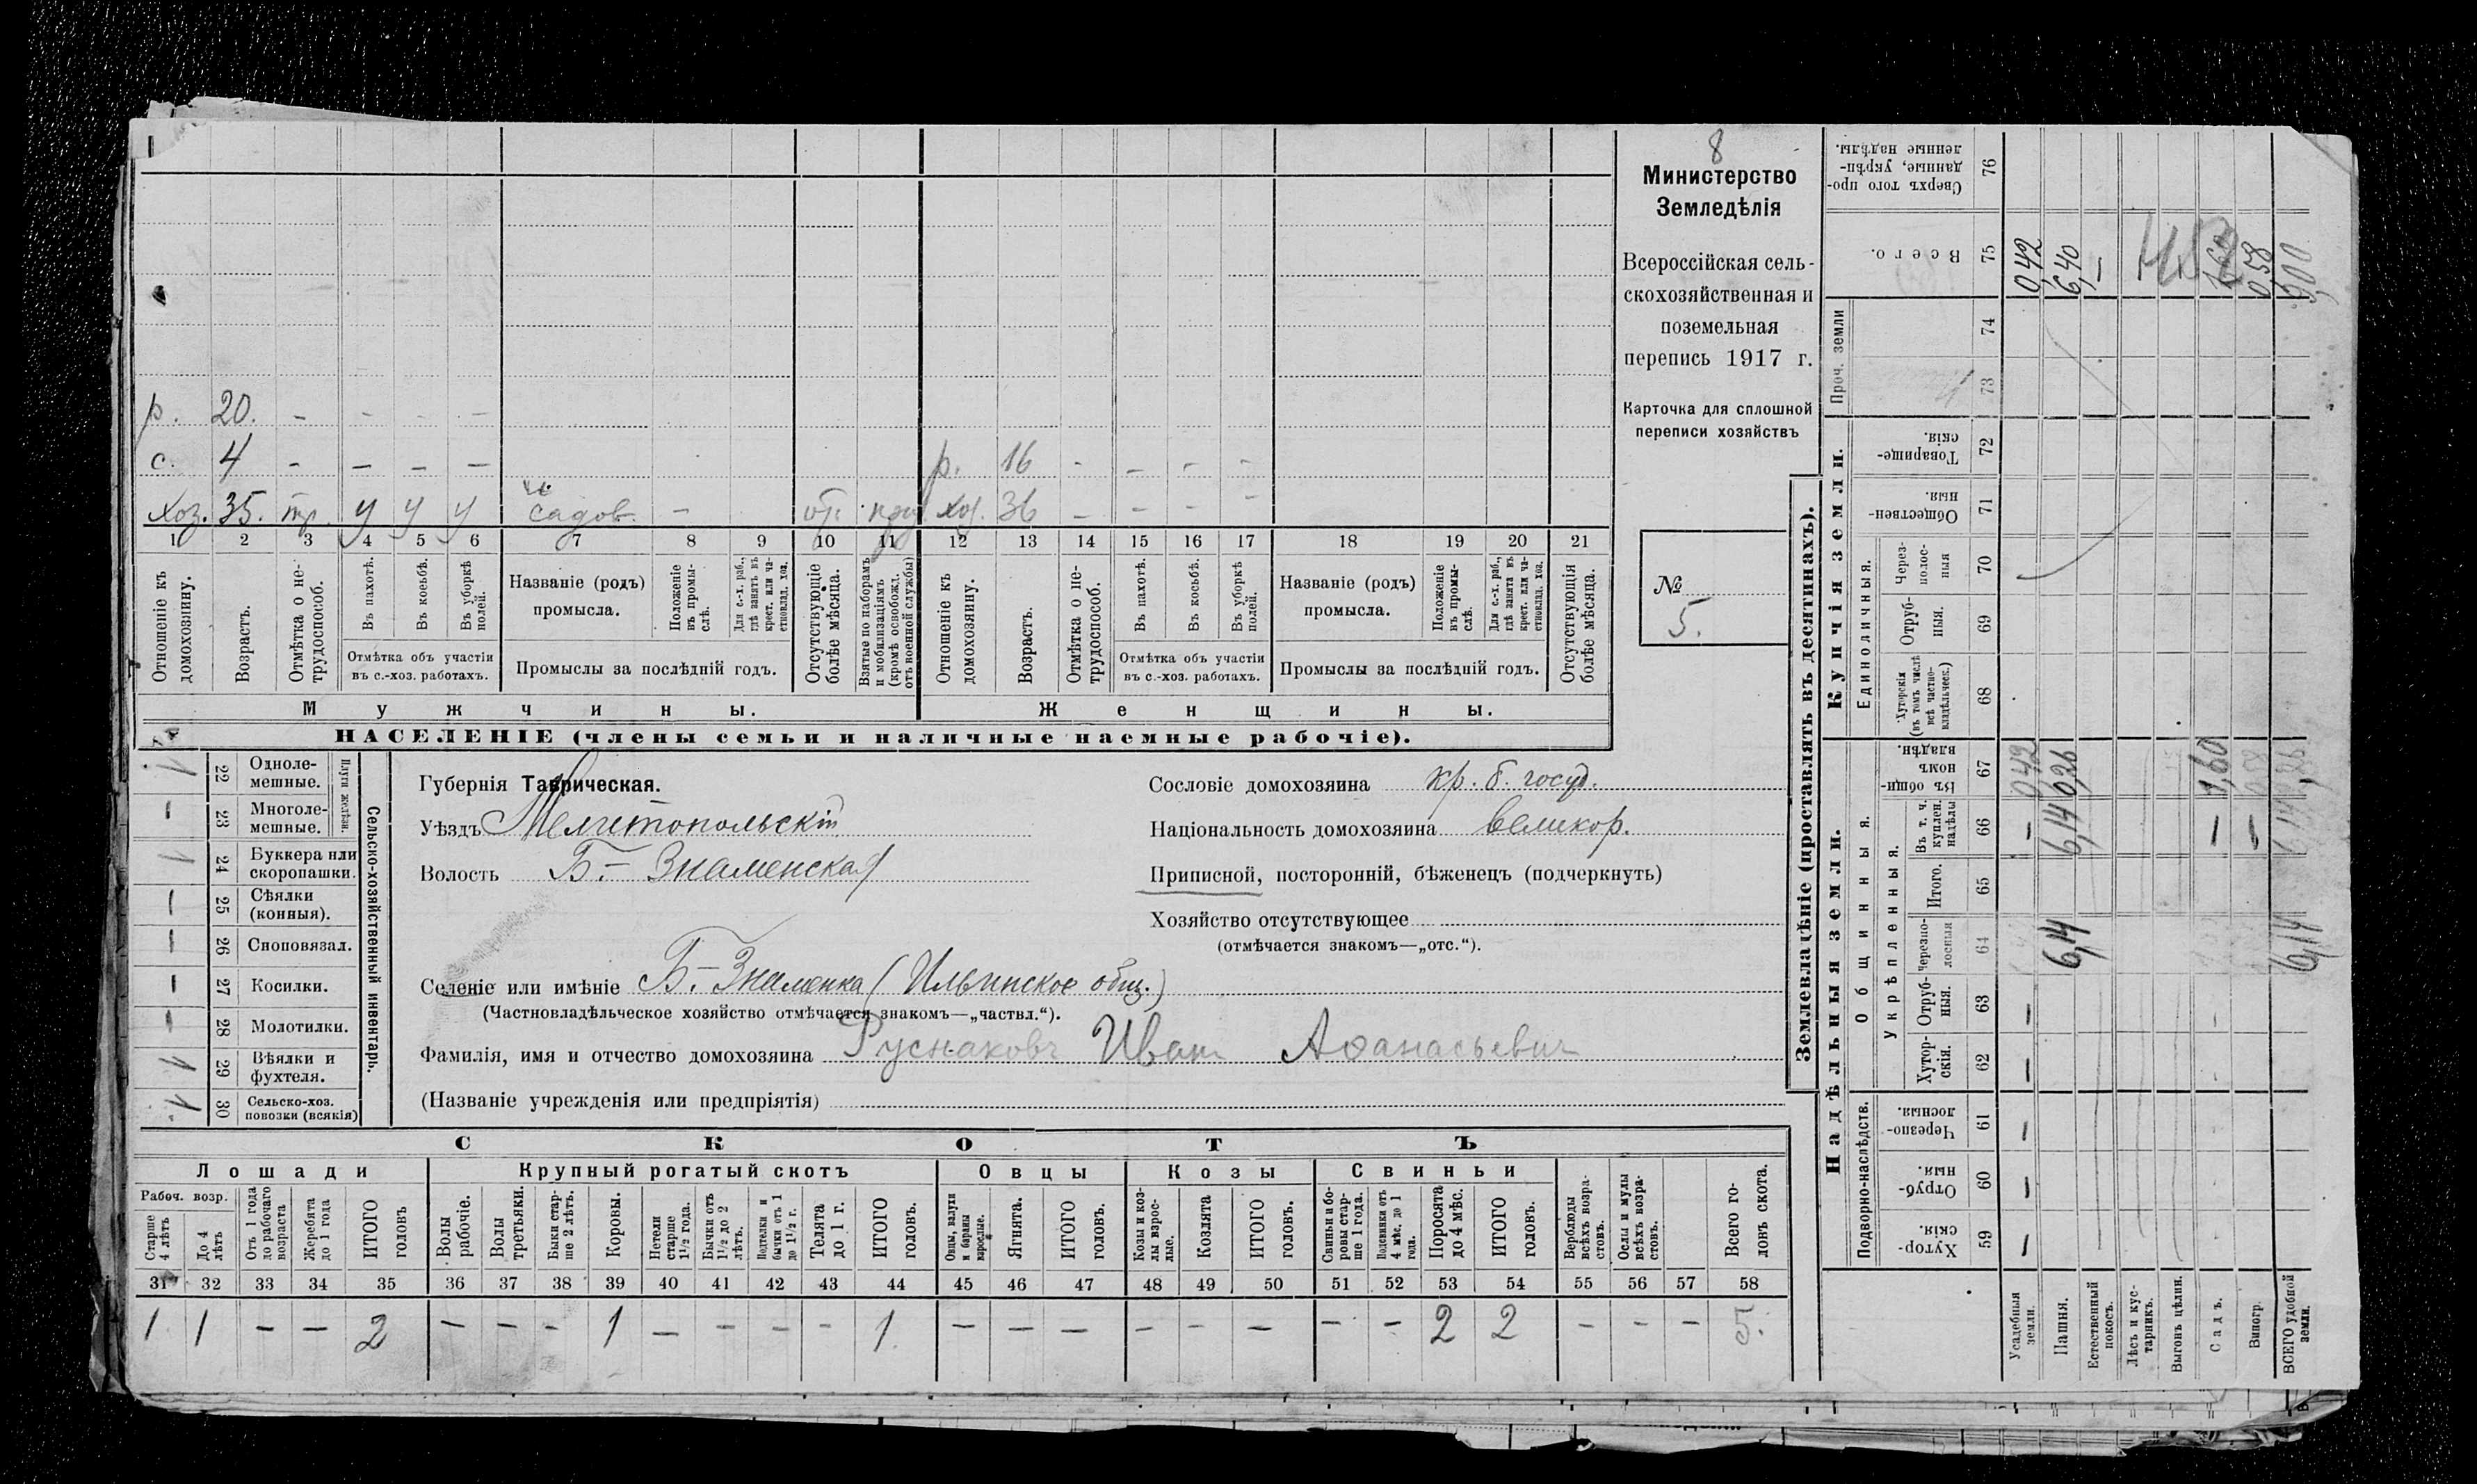 8
Министерство
Земледѣлія
Всероссійская сель-
скохозяйственная и
поземельная
перепись 1917 г.
Карточка для сплошной
переписи хозяйствъ
№
5.
р. 20. - - - -
с. 4 - - - - р. 16 - - - -
хоз. 35. тр. у у у садов. - от. хоз. 36 - - - -
1 2 3 4 5 6 7 8 9 10 11 12 13 14 15 16 17 18 19 20 21
Отношеніе къ домохозяину.
Возрастъ.
Отмѣтка о не-трудоспособ.
Въ пахотѣ.
Въ косьбѣ.
Въ уборкѣ полей.
Отмѣтка объ участіи
въ с.-хоз. работахъ.
Названіе (родъ)
промысла.
Положеніе въ промы-слѣ.
Для с.-х. раб., гдѣ занятъ въ крест. или ча-стновлад. хоз.
Промыслы за послѣдній годъ.
Отсутствующіе болѣе мѣсяца.
Взятые по наборамъ и мобилизаціямъ (кромѣ освобожд. отъ военной службы)
Отношеніе къ домохозяину.
Возрастъ.
Отмѣтка о не-трудоспособ.
Въ пахотѣ.
Въ косьбѣ.
Въ уборкѣ полей.
Отмѣтка объ участіи
въ с.-хоз. работахъ.
Названіе (родъ)
промысла.
Положеніе въ промы-слѣ.
Для с.-х. раб., гдѣ занята въ крест. или ча-стновлад. хоз.
Промыслы за послѣдній годъ.
Отсутствующія болѣе мѣсяца.
Мужчины. Женщины.
НАСЕЛЕНІЕ (члены семьи и наличные наемные рабочіе).
1 22 Одноле-мешные.
- 23 Многоле-мешные.
Плуги желѣзн.
1 24 Буккера или скоропашки.
- 25 Сѣялки (конныя).
- 26 Сноповязал.
- 27 Косилки.
- 28 Молотилки.
1 29 Вѣялки и фухтеля.
1. 30 Сельско-хоз. повозки (всякія)
Сельско-хозяйственный инвентарь.
Губернія Таврическая.
Уѣздъ Мелитопольскій
Волость Б.-Знаменская
Селеніе или имѣніе Б.-Знаменка (Ильинское общ.)
(Частновладѣльческое хозяйство отмѣчается знакомъ—„частвл.“).
Фамилія, имя и отчество домохозяина Руснаковъ Иван Аѳанасьевич
(Названіе учрежденія или предпріятія)
Сословіе домохозяина кр. б. госуд.
Національность домохозяина великор.
Приписной, посторонній, бѣженецъ (подчеркнуть)
Хозяйство отсутствующее
(отмѣчается знакомъ—„отс.“).
СКОТЪ
Лошади Крупный рогатый скотъ Овцы Козы Свиньи
Рабоч. возр.
Старше 4 лѣтъ
До 4 лѣтъ
Отъ 1 года до рабочаго возраста
Жеребята до 1 года
ИТОГО головъ
Волы рабочіе.
Волы третьяки.
Быки стар-ше 2 лѣтъ.
Коровы.
Нетели старше 1½ года.
Бычки отъ 1½ до 2 лѣтъ.
Подтелки и бычки отъ 1 до 1½ г.
Телята до 1 г.
ИТОГО головъ.
Овцы, валухи и бараны взрослые.
Ягнята.
ИТОГО головъ.
Козы и коз-лы взрос-лые.
Козлята
ИТОГО головъ.
Свиньи и бо-ровы стар-ше 1 года.
Подсвинки отъ 4 мѣс. до 1 года.
Поросята до 4 мѣс.
ИТОГО головъ.
Верблюды всѣхъ возра-стовъ.
Ослы и мулы всѣхъ возра-стовъ.
Всего го-ловъ скота.
31 32 33 34 35 36 37 38 39 40 41 42 43 44 45 46 47 48 49 50 51 52 53 54 55 56 57 58
1 1 - - 2 - - - 1 - - - - 1 - - - - - - - - 2 2 - - - 5.
Землевладѣніе (проставлять въ десятинахъ).
Надѣльныя земли. Купчія земли. Проч. земли
Подворно-наслѣдств.
Общинныя.
Укрѣпленныя.
Единоличныя.
Хутор-скія. 59
Отруб-ныя. 60
Черезпо-лосныя. 61
Хутор-скія. 62
Отруб-ныя. 63
Черезпо-лосныя 64
Итого. 65
Въ т. ч. куплен. надѣлы 66
Въ общин-номъ владѣн. 67
Хуторскія (въ томъ числѣ всѣ частно-владѣльческ.) 68
Отруб-ныя. 69
Через-полос-ныя 70
Обществен-ныя. 71
Товарище-скія. 72
73
74
Всего. 75
Сверхъ того про-данные, укрѣп-ленные надѣлы. 76
Усадебныя земли. - - - - - - 0,42 0,42
Пашня. 6,14 6,14 0,26 6,40
Естественный покосъ. -
Лѣсъ и кус-тарникъ.
Выгонъ цѣлин.
Садъ. - 1,60 1,60
Виногр. - 0,58 0,58
ВСЕГО удобной земли. 6,14 6,14 9,00